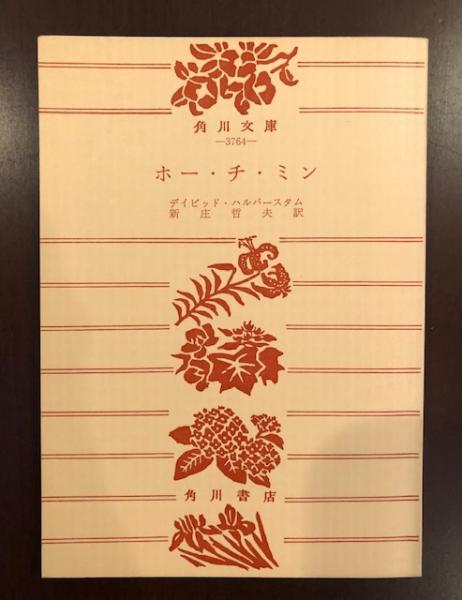 角川文庫
—3764—
ホー・チ・ミン
デイビッド・ハルバースタム
新庄哲夫訳
角川書店